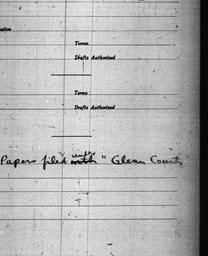 ation
Terms
Drafts Authorized
Terms
Drafts Authorized
under
Papers filed with "Glenn County